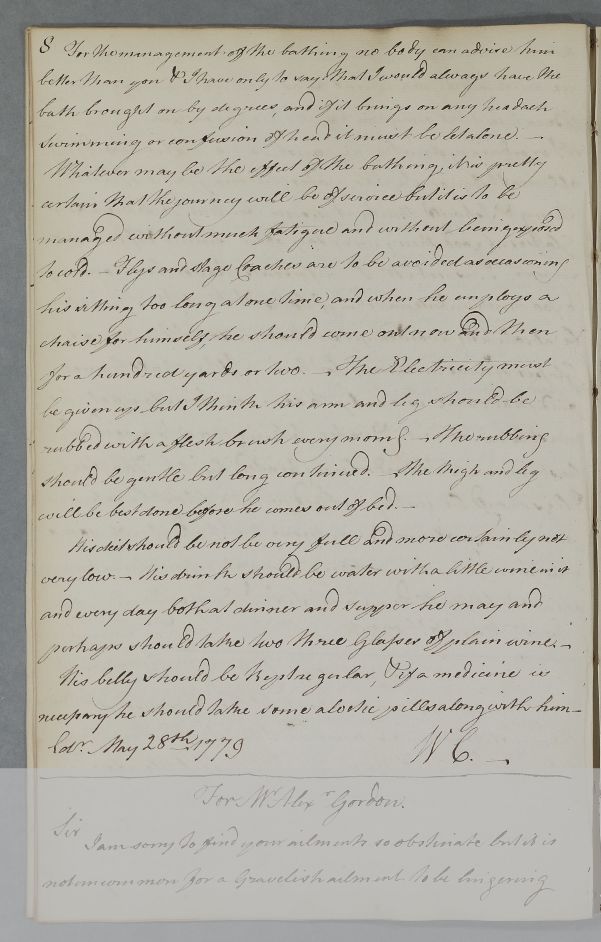 8 For the management of the bathing no body can advise him
better than you & I have only to say that I would always have the
bath brought on by degrees, and if it brings on any headach
swimming or confusion of head it must be let alone. —
Whatever may be the effect of the bathing, it is pretty
certain that the journey will be of service but it is to be
managed without much fatigue and without being exposed
to cold. — Flys and stage Coaches are to be avoided as occasioning
his sitting too long at one time, and when he employs a
chaise for himself, he should come out now and then
for a hundred yards or two. — The Electricity must
be given up but I think his arm and leg should be
rubbed with a flesh brush every morng. — The rubbing
should be gentle but long continued. — The thigh and leg
will be best done before he comes out of bed. —
His diet should be not be very full and more certainly not
very low — His drink should be water with a little wine in it
and every day both at dinner and supper he may and
perhaps should take two three Glasses of plain wine. —
His belly should be kept regular, & if a medicine is
necessary he should take some aloetic pills along with him —
Edr. May 28th. 1779 W C. —
For Mr. Alexr. Gordon.
Sir
I am sorry to find your ailments so obstinate but it is
not uncommon for a Gravelish ailment to be lingering